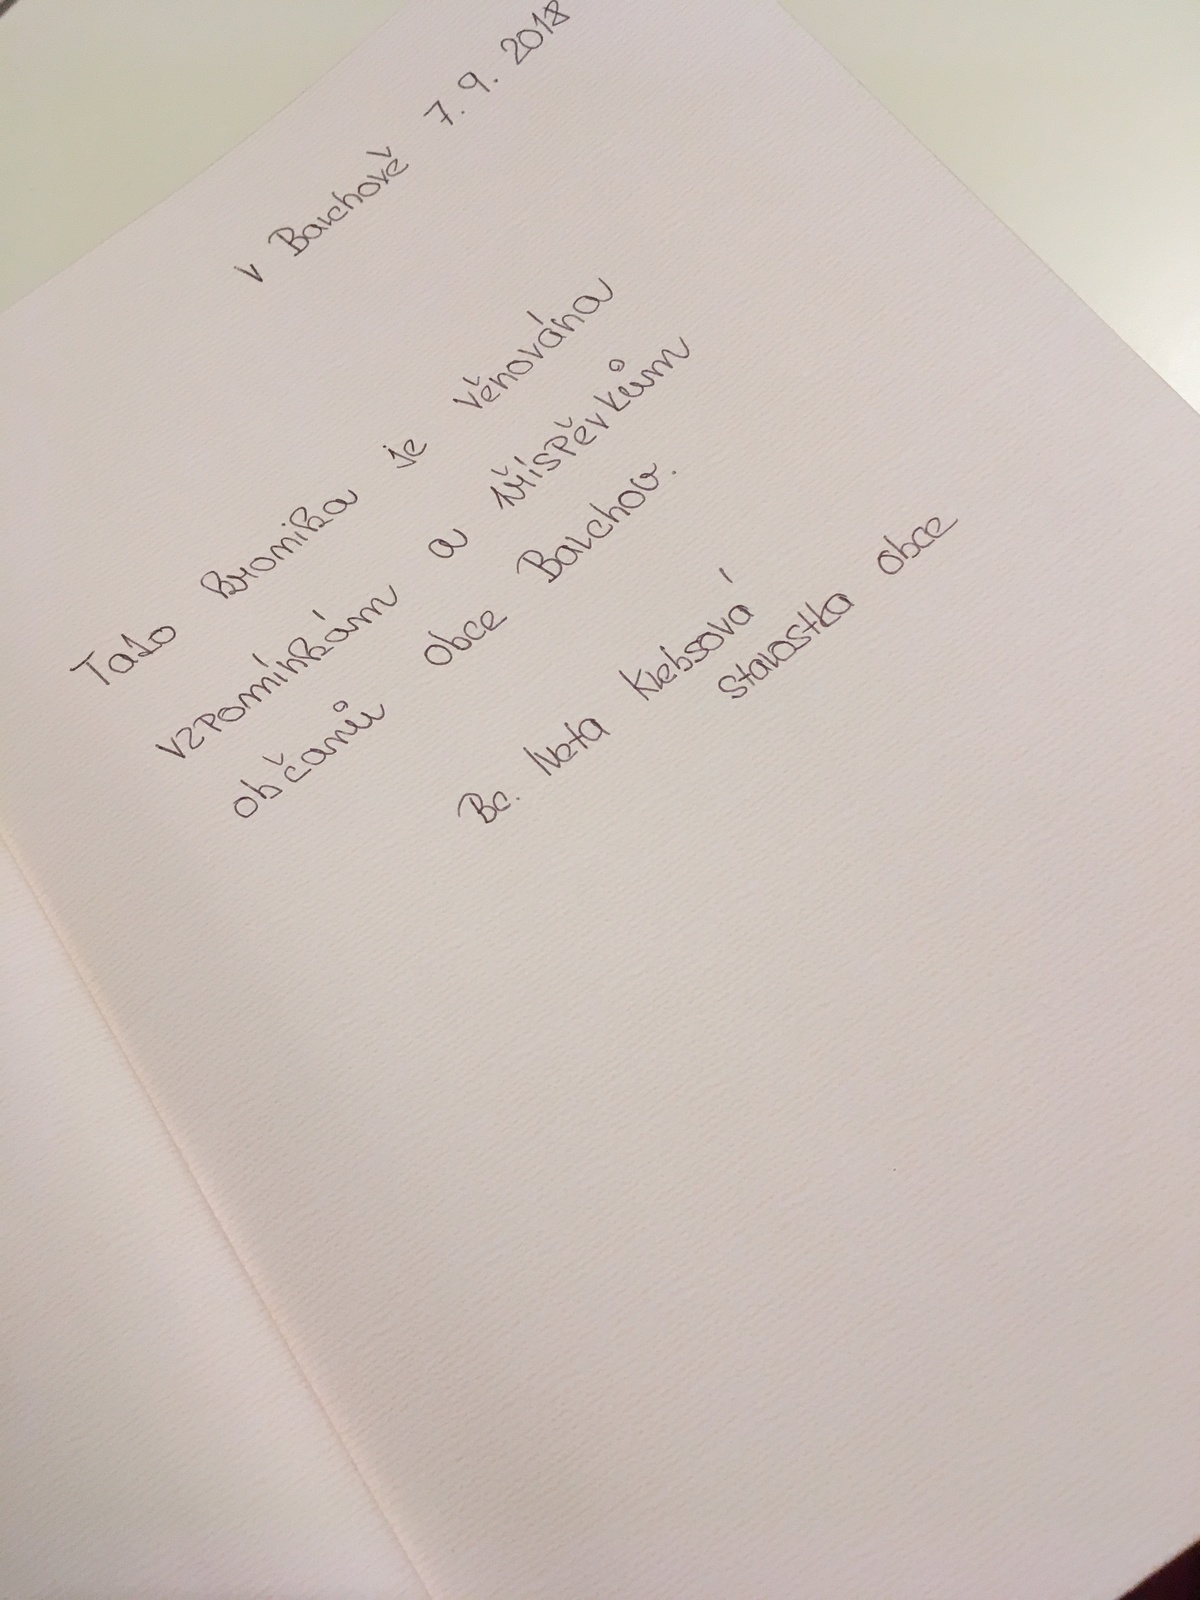 V Balchově 7. 9. 2018
Tato kronika je věnována
vzpomínkám a příspěvkům
občanů obce Balchov.
Bc. Iveta Klebsová
starostka obce